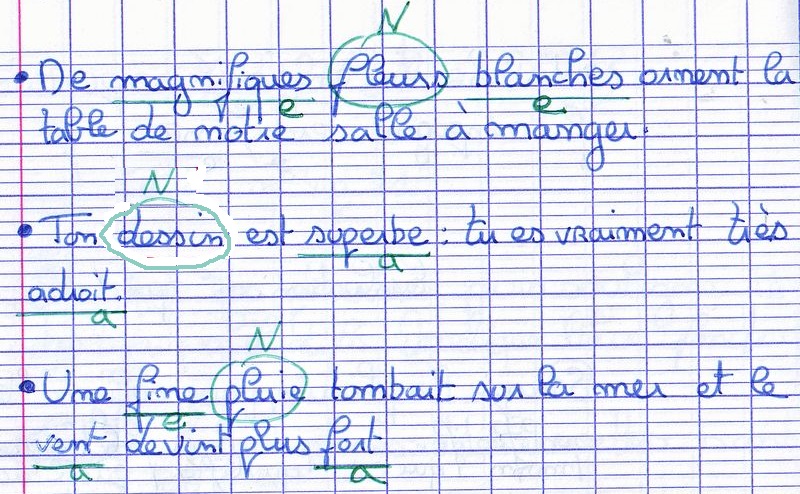 N
• De magnifiques fleurs blanches ornent la
e e
table de notre salle à manger.
N
• Ton dessin est superbe : tu es vraiment très
a
adroit.
a
N
• Une fine pluie tombait sur la mer et le
e
vent devint plus fort
a a